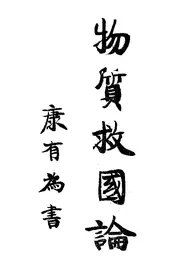 物質救國論
康有為書